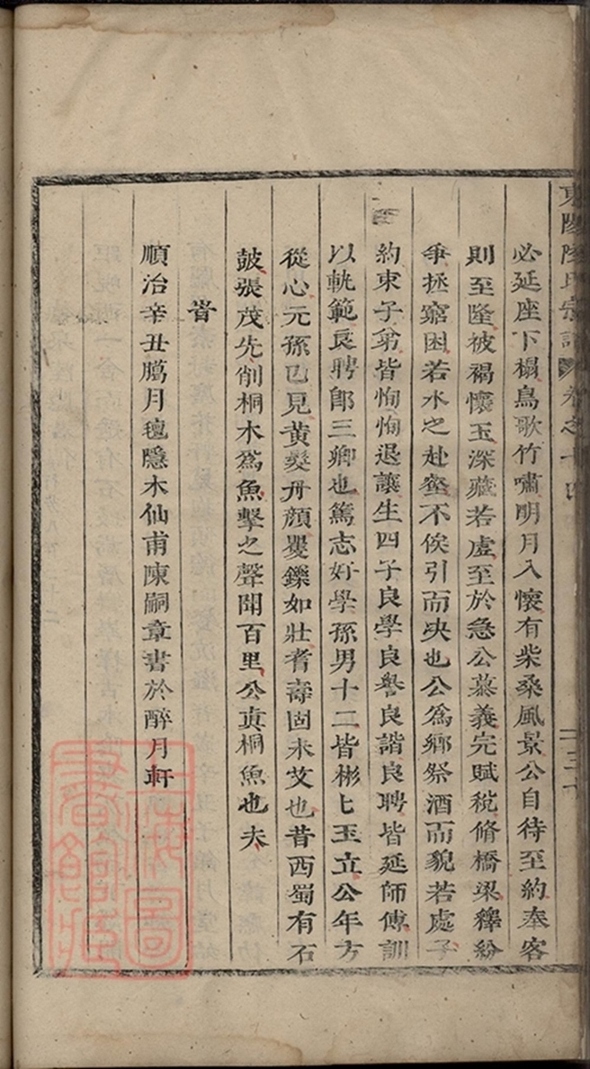 東陽陳氏宗譜 卷之十四
必延座下榻鳥歌竹嘯明月入懷有柴桑風景公自待至約奉客
則至隆被褐懷玉深藏若虛至於急公慕義完賦稅脩橋梁釋紛
爭拯窮困若水之赴壑不俟引而决也公爲鄉祭酒而貌若處子
約束子弟皆恂恂退讓生四子良學良譽良諧良聘皆延師傅訓
以軌範良聘郎三卿也篤志好學孫男十二皆彬匕玉立公年方
從心元孫已見黃髮丹顏矍鑠如壯者壽固未艾也昔西蜀有石
鼓張茂先削桐木爲魚擊之聲聞百里公眞桐魚也夫
旹
順治辛丑臈月氊隱木仙甫陳嗣章書於醉月軒
上海圖書館藏